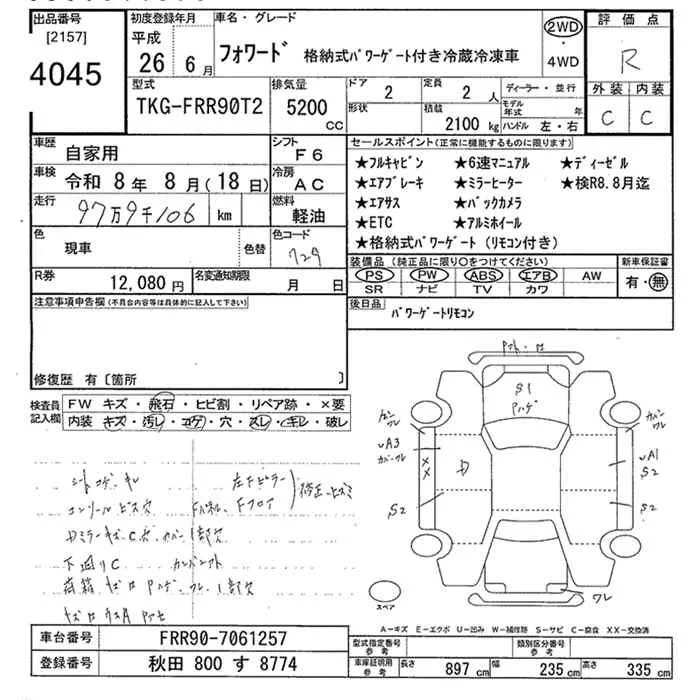 出品番号
[2157]
4045
初度登録年月
平成
26 6月
車名・グレード
フォワード 格納式パワーゲート付き冷蔵冷凍車
2WD
・
4WD
評価点
R
外装 内装
C C
型式
TKG-FRR90T2
排気量
5200
CC
ドア
2
定員
2 人
形状
積載
2100 kg
ディーラー・並行
モデル年式 年
ハンドル 左・右
車歴
自家用
シフト
F6
車検
令和 8年 8月(18日)
冷房
AC
走行
97万9千106 km
燃料
軽油
色
現車
色替
色コード
729
R券
12,080円
名変通知期限
月 日
セールスポイント(正常に機能するものに限ります)
★フルキャビン ★6速マニュアル ★ディーゼル
★エアブレーキ ★ミラーヒーター ★検R8.8月迄
★エアサス ★バックカメラ
★ETC ★アルミホイール
★格納式パワーゲート(リモコン付き)
装備品(純正品に限り○をつけてください)
PS PW ABS エアB AW
SR ナビ TV カワ
新車保証書
有・無
後日品
パワーゲートリモコン
注意事項申告欄(不具合内容等は具体的に記入して下さい)
修復歴 有〔箇所 〕
検査員記入欄
FW キズ・飛石・ヒビ割・リペア跡・×要
内装 キズ・汚レ・コゲ・穴・スレ・キレ・破レ
シートコゲ・キレ
コンソールビス穴
下廻りC
S1
A3
A1
S2
S2
S2
XX
ワレ
スペア
A―キズ E―エクボ U―凹み W―補修跡 S―サビ C―腐食 XX―交換済
車台番号
FRR90-7061257
登録番号
秋田 800 す 8774
型式指定番号
参考
類別区分番号
参考
車庫証明用
参考
長さ 897 cm 幅 235 cm 高さ 335 cm